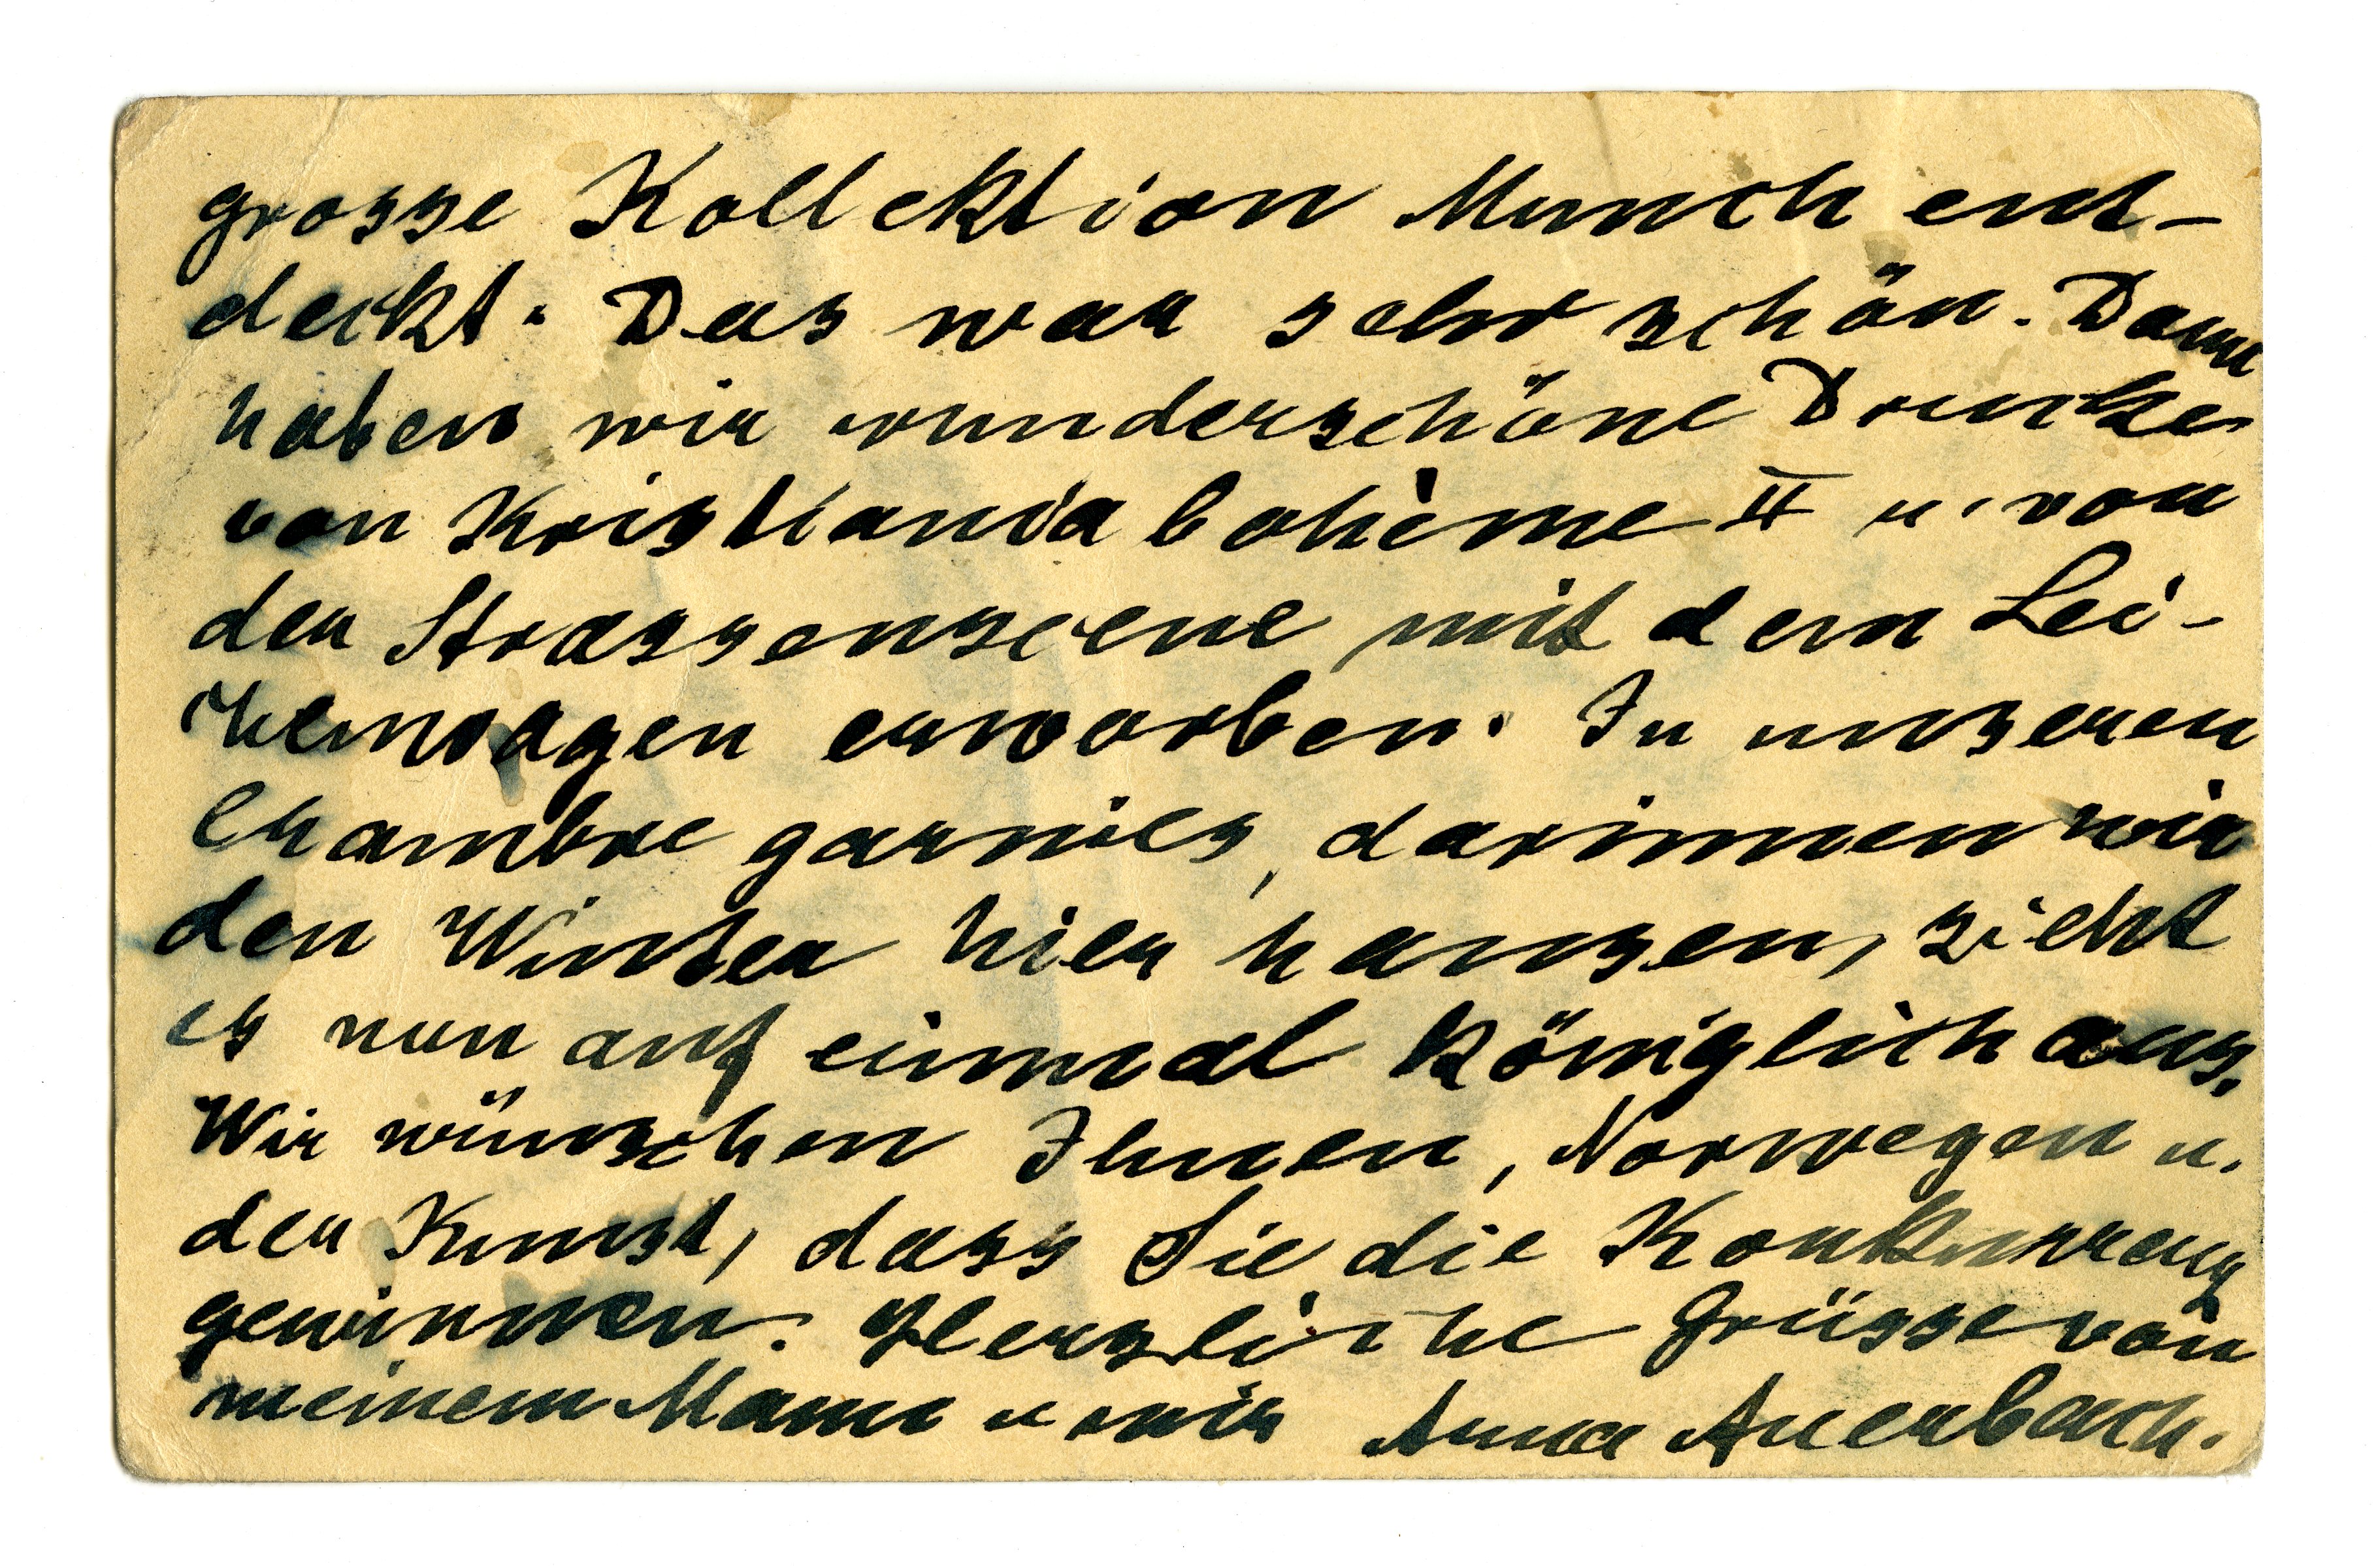 grosse Kollektion Munch ent-
deckt. Das war sehr schön. Dann
haben wir wunderschöne Drucke
von Kristiania bohème II u. von
der Strassenscene mit dem Lei-
chenwagen erworben. In unseren
Chambre garnies, darinnen wir
den Winter hier hausen, sieht
es nun auf einmal königlich aus.
Wir wünschen Ihnen, Norwegen u.
der Kunst, dass Sie die Konkurrenz
gewinnen. Herzliche Grüsse von
meinem Mann u mir Anna Auerbach.